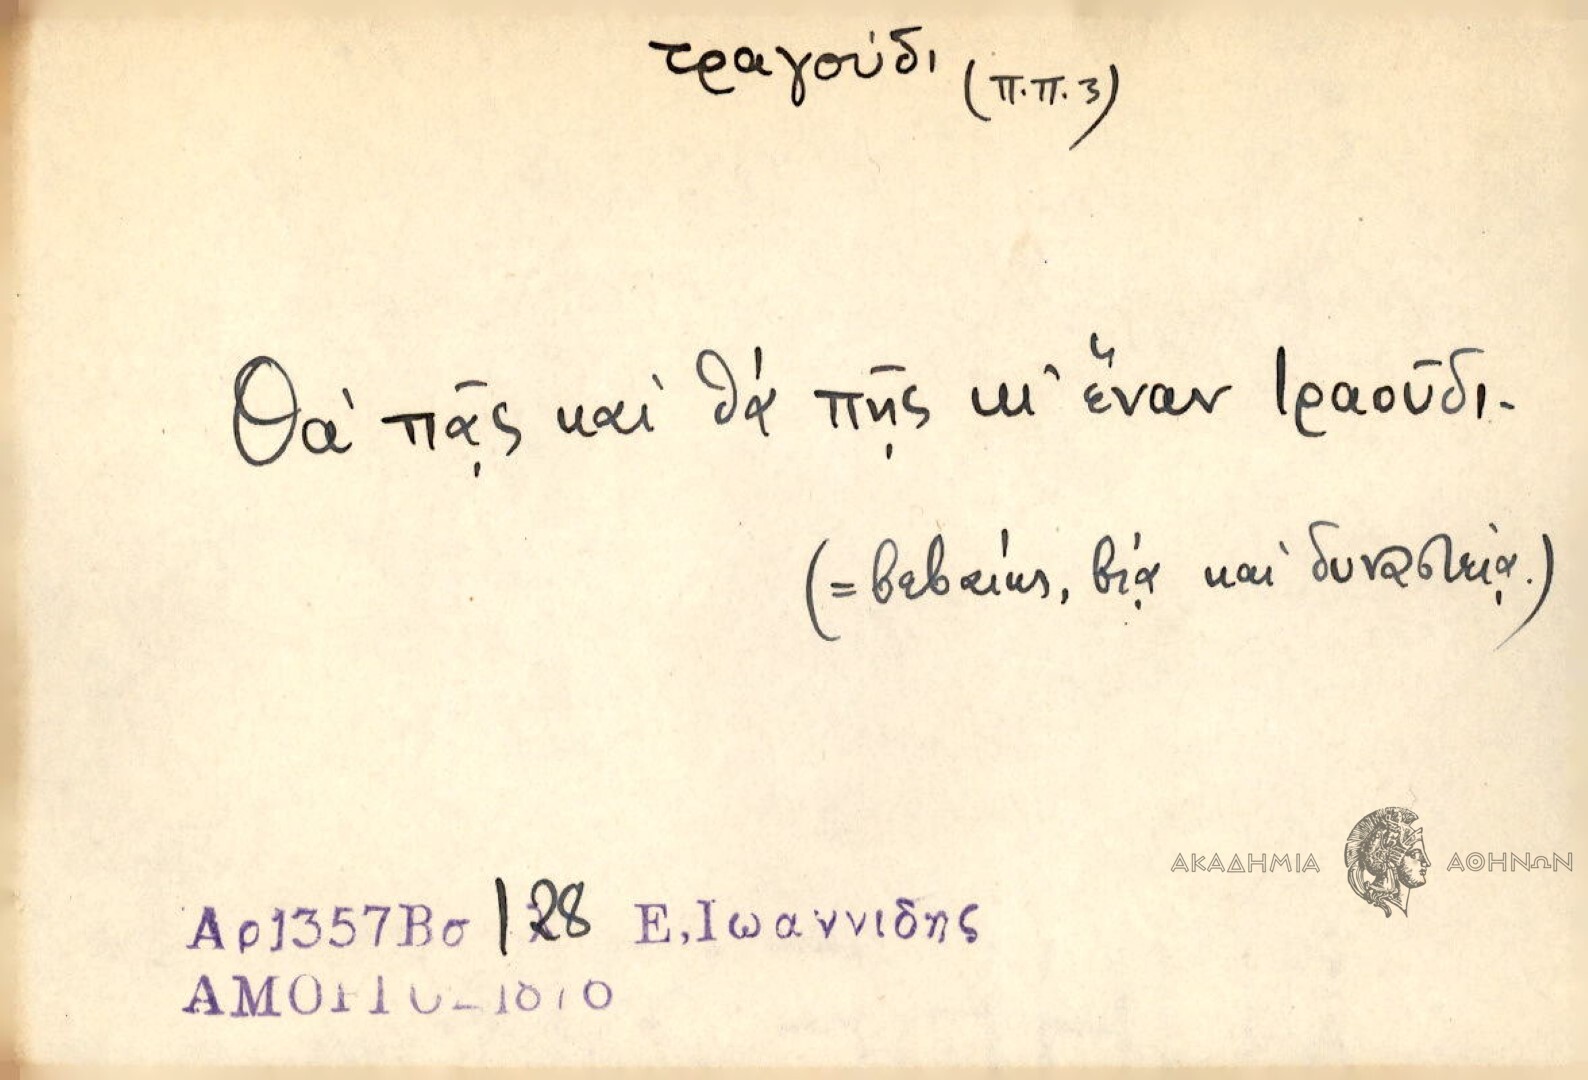 τραγούδι (π.π. 3)
Θὰ πᾷς καὶ θά πῇς κι' ἕναν τραοῦδι.
(= βεβαίως, βίᾳ καὶ δυναστείᾳ.)
ΑΚΑΔΗΜΙΑ ΑΘΗΝΩΝ
Αρ1357Βσ | 28 Ε,Ιωαννιδης